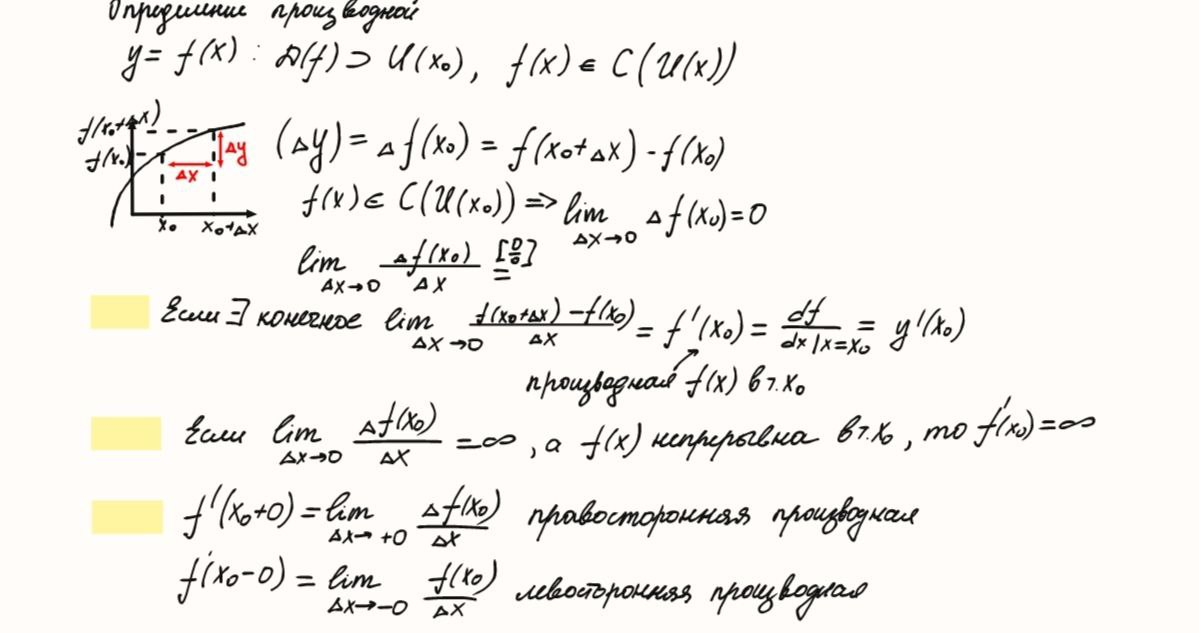 Определение производной
y = f(x) : D(f) ⊃ U(x₀), f(x) ∈ C(U(x))
f(x₀+Δx)
f(x₀)
Δy
Δx
x₀ x₀+Δx
(Δy) = Δf(x₀) = f(x₀+Δx) - f(x₀)
f(x) ∈ C(U(x₀)) => lim Δx→0 Δf(x₀) = 0
lim Δx→0 Δf(x₀)/Δx = [0/0]
Если ∃ конечное lim Δx→0 (f(x₀+Δx) - f(x₀))/Δx = f'(x₀) = df/dx|x=x₀ = y'(x₀)
производная f(x) в т. x₀
Если lim Δx→0 Δf(x₀)/Δx = ∞, а f(x) непрерывна в т. x₀, то f'(x₀) = ∞
f'(x₀+0) = lim Δx→+0 Δf(x₀)/Δx правосторонняя производная
f'(x₀-0) = lim Δx→-0 f(x₀)/Δx левосторонняя производная